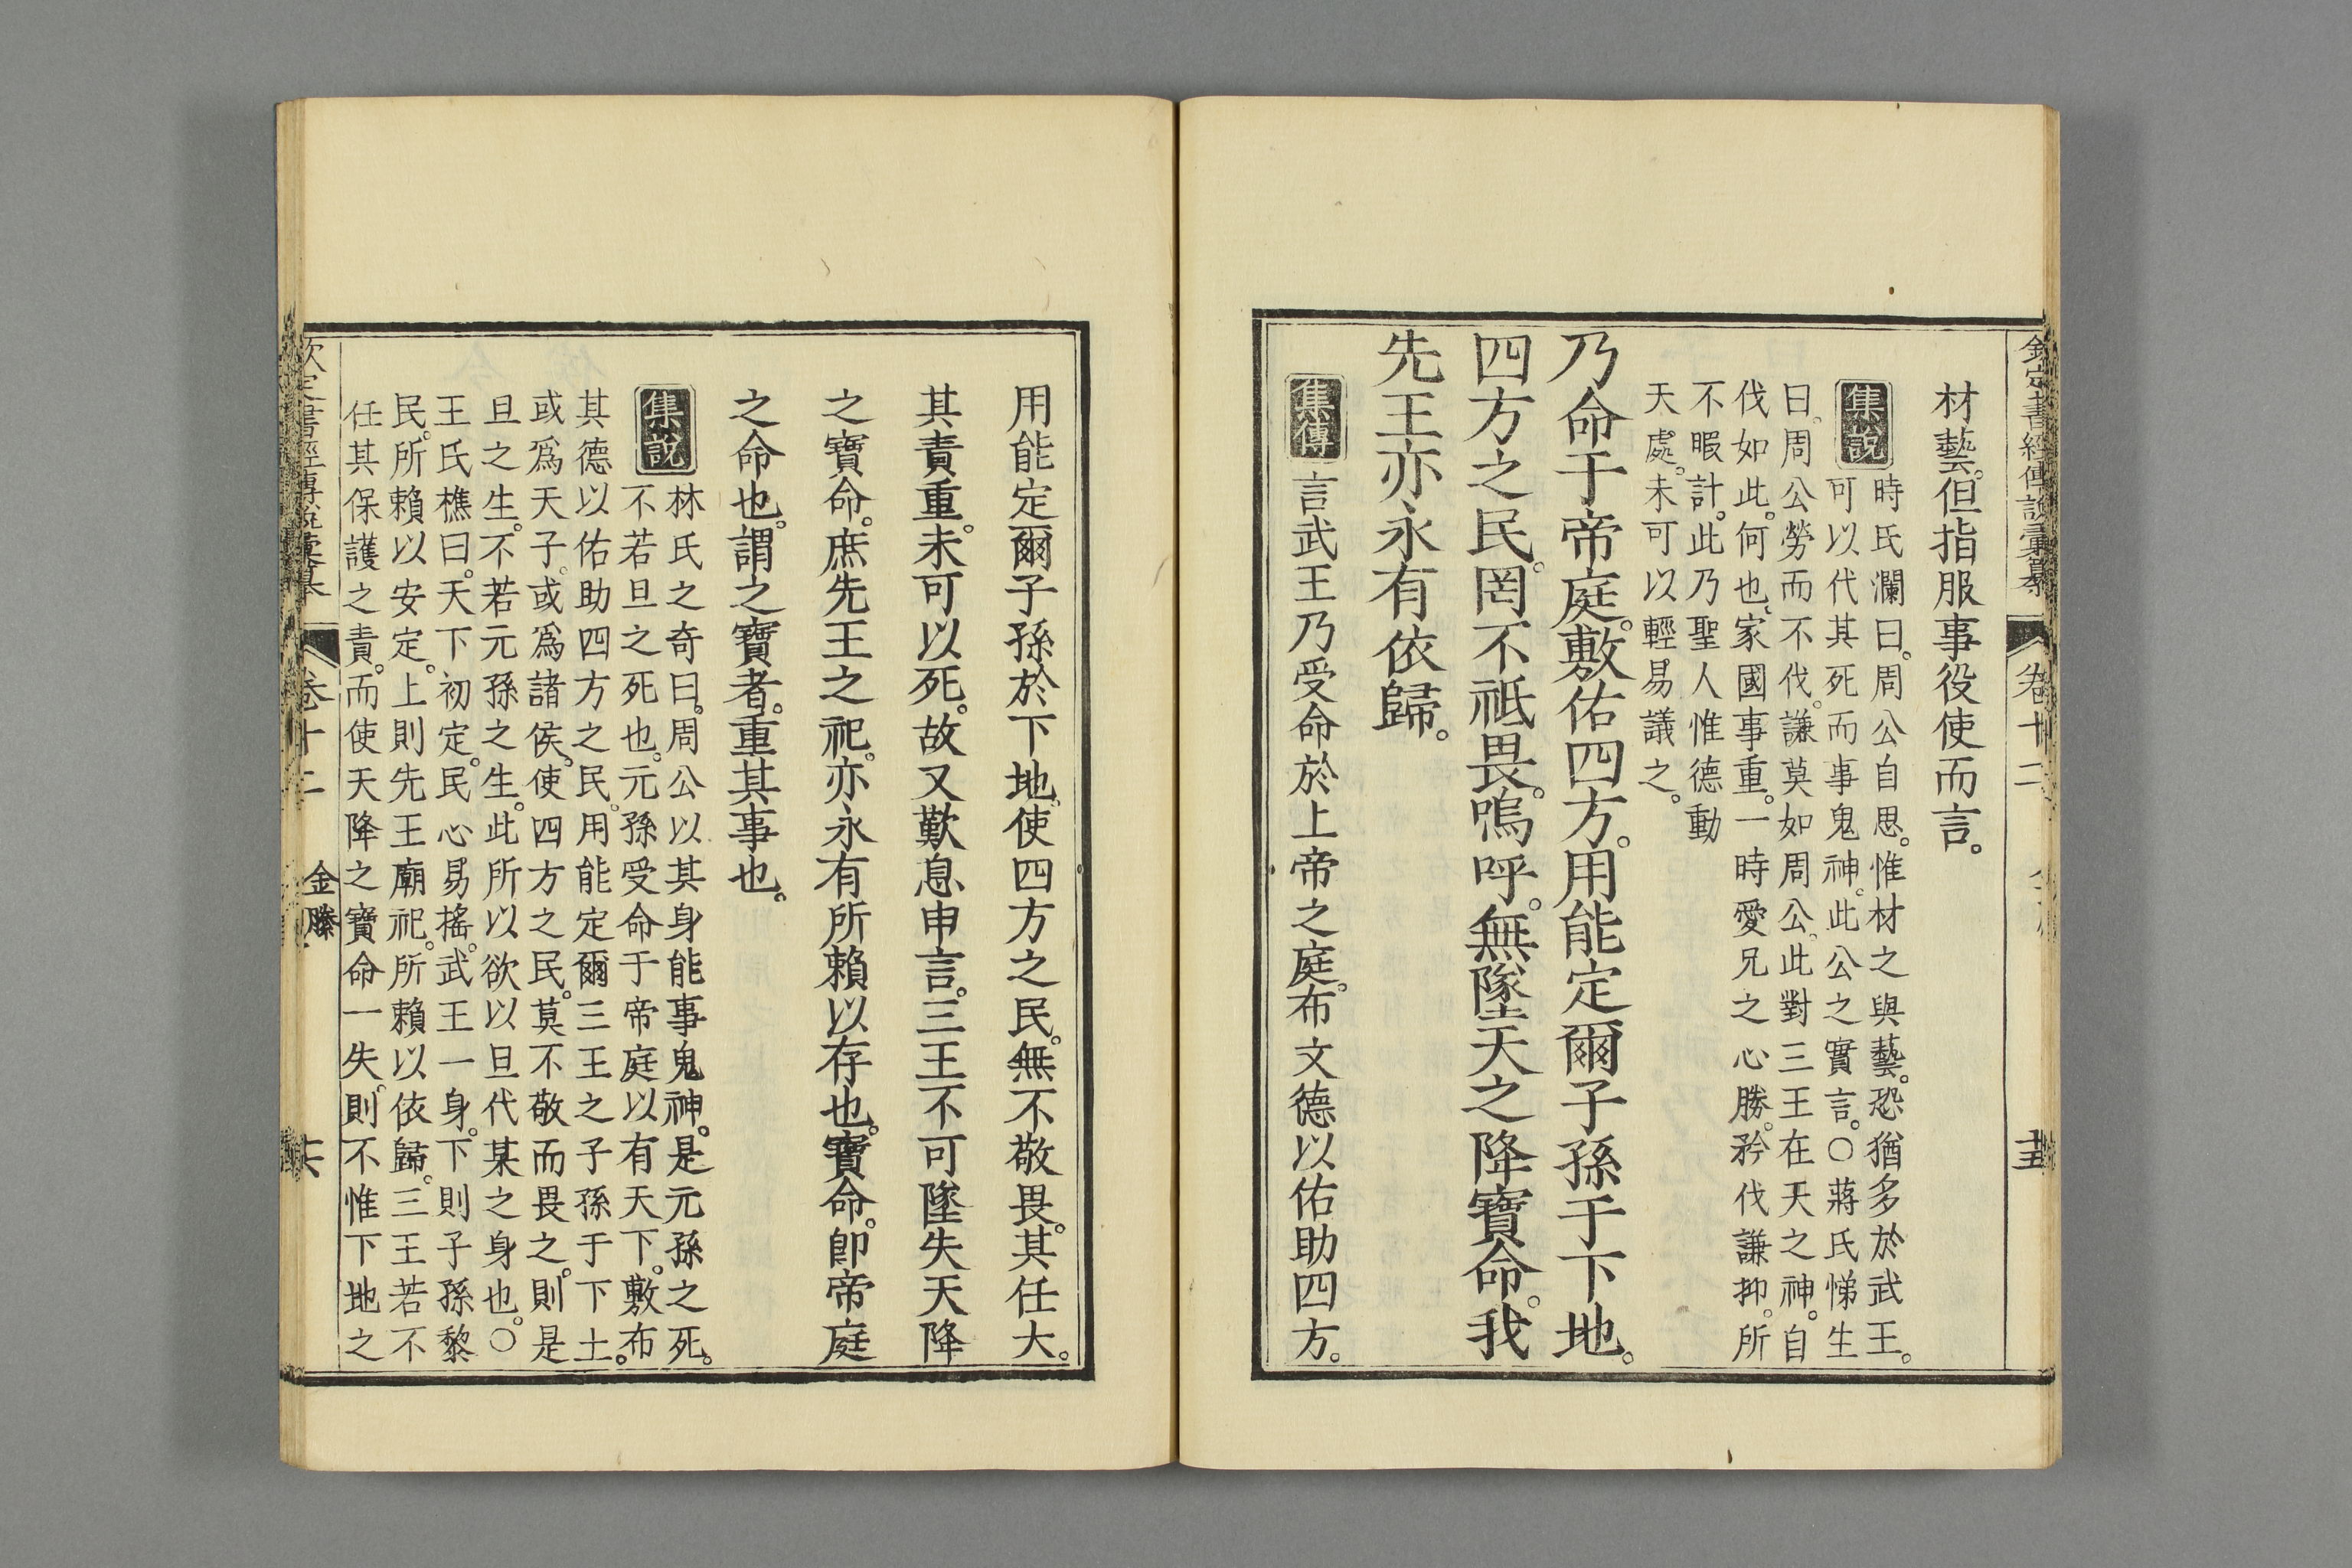 欽定書經傳說彙纂 卷十二
材藝但指服事役使而言。
集說
時氏瀾曰。周公自思。惟材之與藝。恐猶多於武王。
可以代其死而事鬼神。此公之實言。○蔣氏悌生
曰。周公勞而不伐。謙莫如周公。此對三王在天之神。自
伐如此。何也。家國事重。一時愛兄之心勝。矜伐謙抑。所
不暇計。此乃聖人惟德動
天處。未可以輕易議之。
乃命于帝庭。敷佑四方。用能定爾子孫于下地。
四方之民。罔不祗畏。嗚呼。無墜天之降寶命。我
先王亦永有依歸。
集傳
言武王乃受命於上帝之庭。布文德以佑助四方。
用能定爾子孫於下地。使四方之民。無不敬畏。其任大。
其責重。未可以死。故又歎息申言。三王不可墜失天降
之寶命。庶先王之祀。亦永有所賴以存也。寶命。卽帝庭
之命也。謂之寶者。重其事也。
集說
林氏之奇曰。周公以其身能事鬼神。是元孫之死。
不若旦之死也。元孫受命于帝庭以有天下。敷布
其德以佑助四方之民。用能定爾三王之子孫于下土。
或爲天子。或爲諸侯。使四方之民。莫不敬而畏之。則是
旦之生。不若元孫之生。此所以欲以旦代某之身也。○
王氏樵曰。天下初定。民心易搖。武王一身。下則子孫黎
民。所賴以安定。上則先王廟祀。所賴以依歸。三王若不
任其保護之責。而使天降之寶命一失。則不惟下地之
欽定書經傳說彙纂 卷十二 金縢